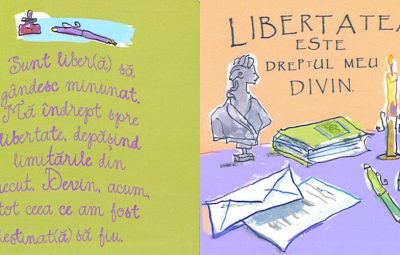 Sunt liber(ă) să
gândesc minunat.
Mă îndrept spre
libertate, depășind
limitările din
trecut. Devin, acum,
tot ceea ce am fost
destinat(ă) să fiu.
LIBERTATEA
ESTE
DREPTUL MEU
DIVIN.